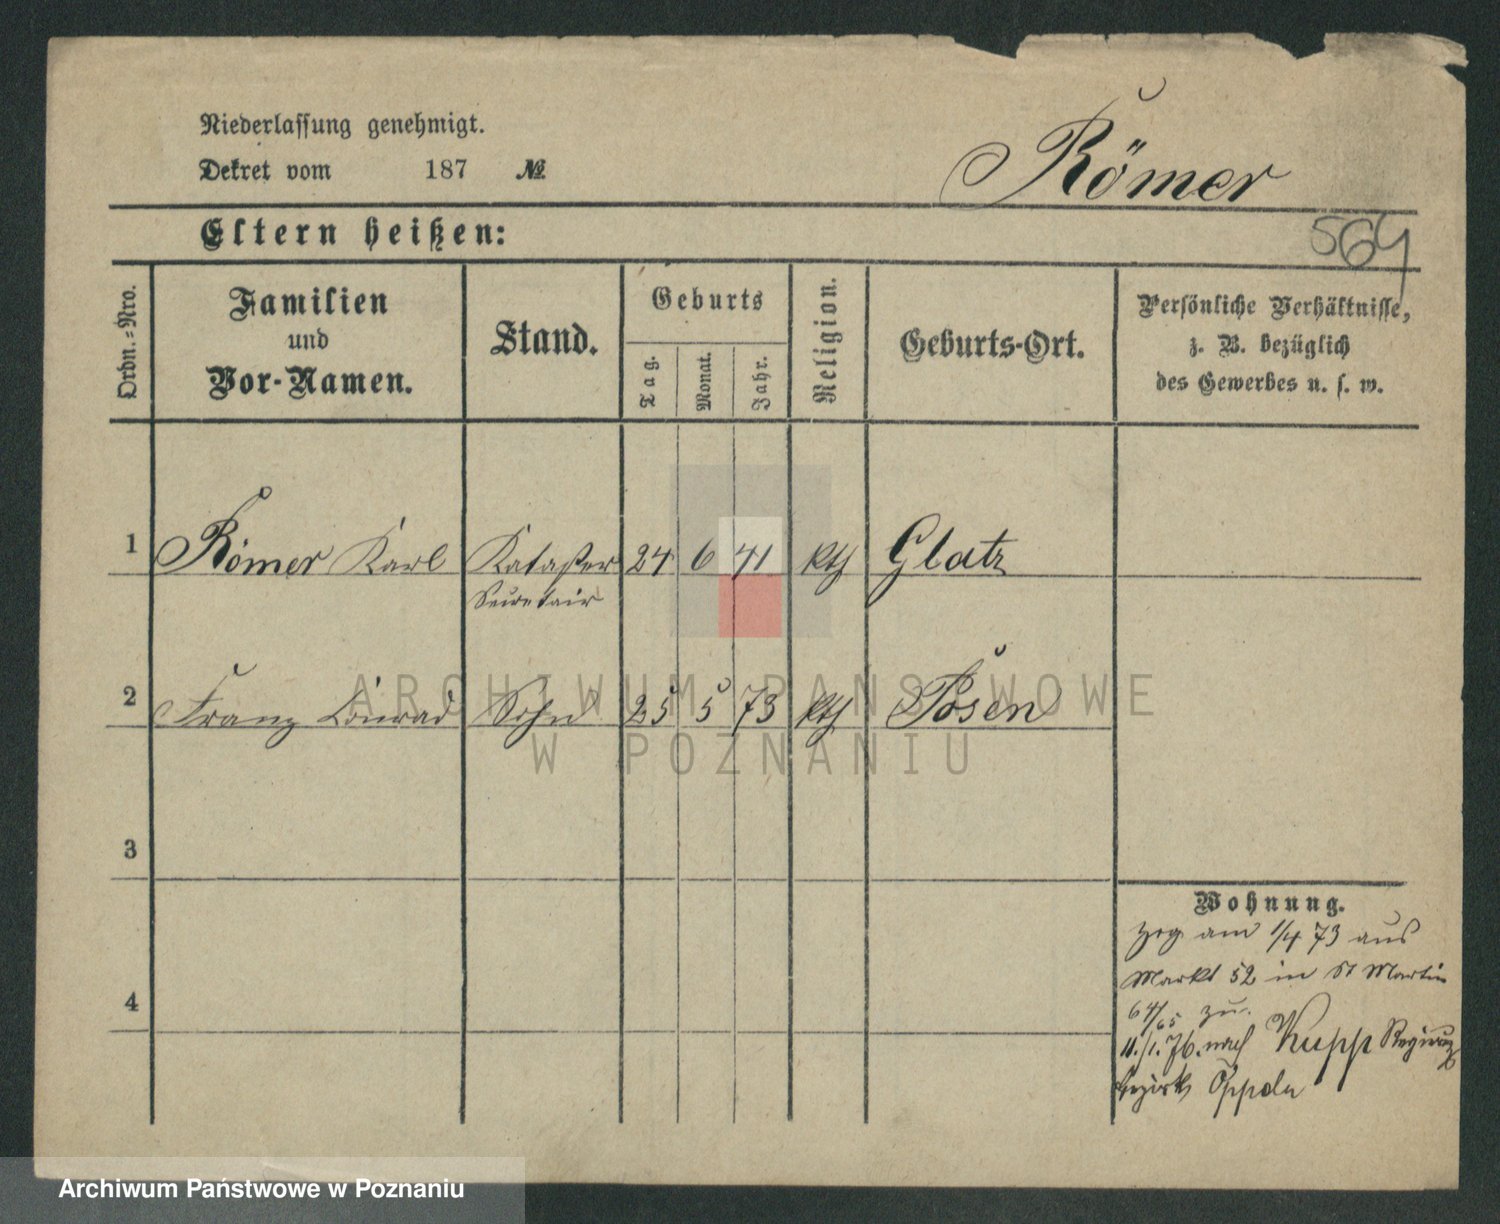 Niederlassung genehmigt.
Dekret vom 187 №
Römer
Eltern heißen:
564
Ordn.-Nro.
Familien
und
Vor-Namen.
Stand.
Geburts
Tag.
Monat.
Jahr.
Religion.
Geburts-Ort.
Persönliche Verhältnisse,
z. B. bezüglich
des Gewerbes u. s. w.
1 Römer Karl Kataster 24 6 41 kth Glatz
Secretair
2 Franz Conrad Sohn 25 5 73 kth Posen
3
4
Wohnung.
zog am 1/4 73 aus
Markt 52 in St Martin
64/65 zu.
11./1. 76. nach Kupp Regierungs
bezirk Oppeln
ARCHIWUM PAŃSTWOWE
W POZNANIU
Archiwum Państwowe w Poznaniu